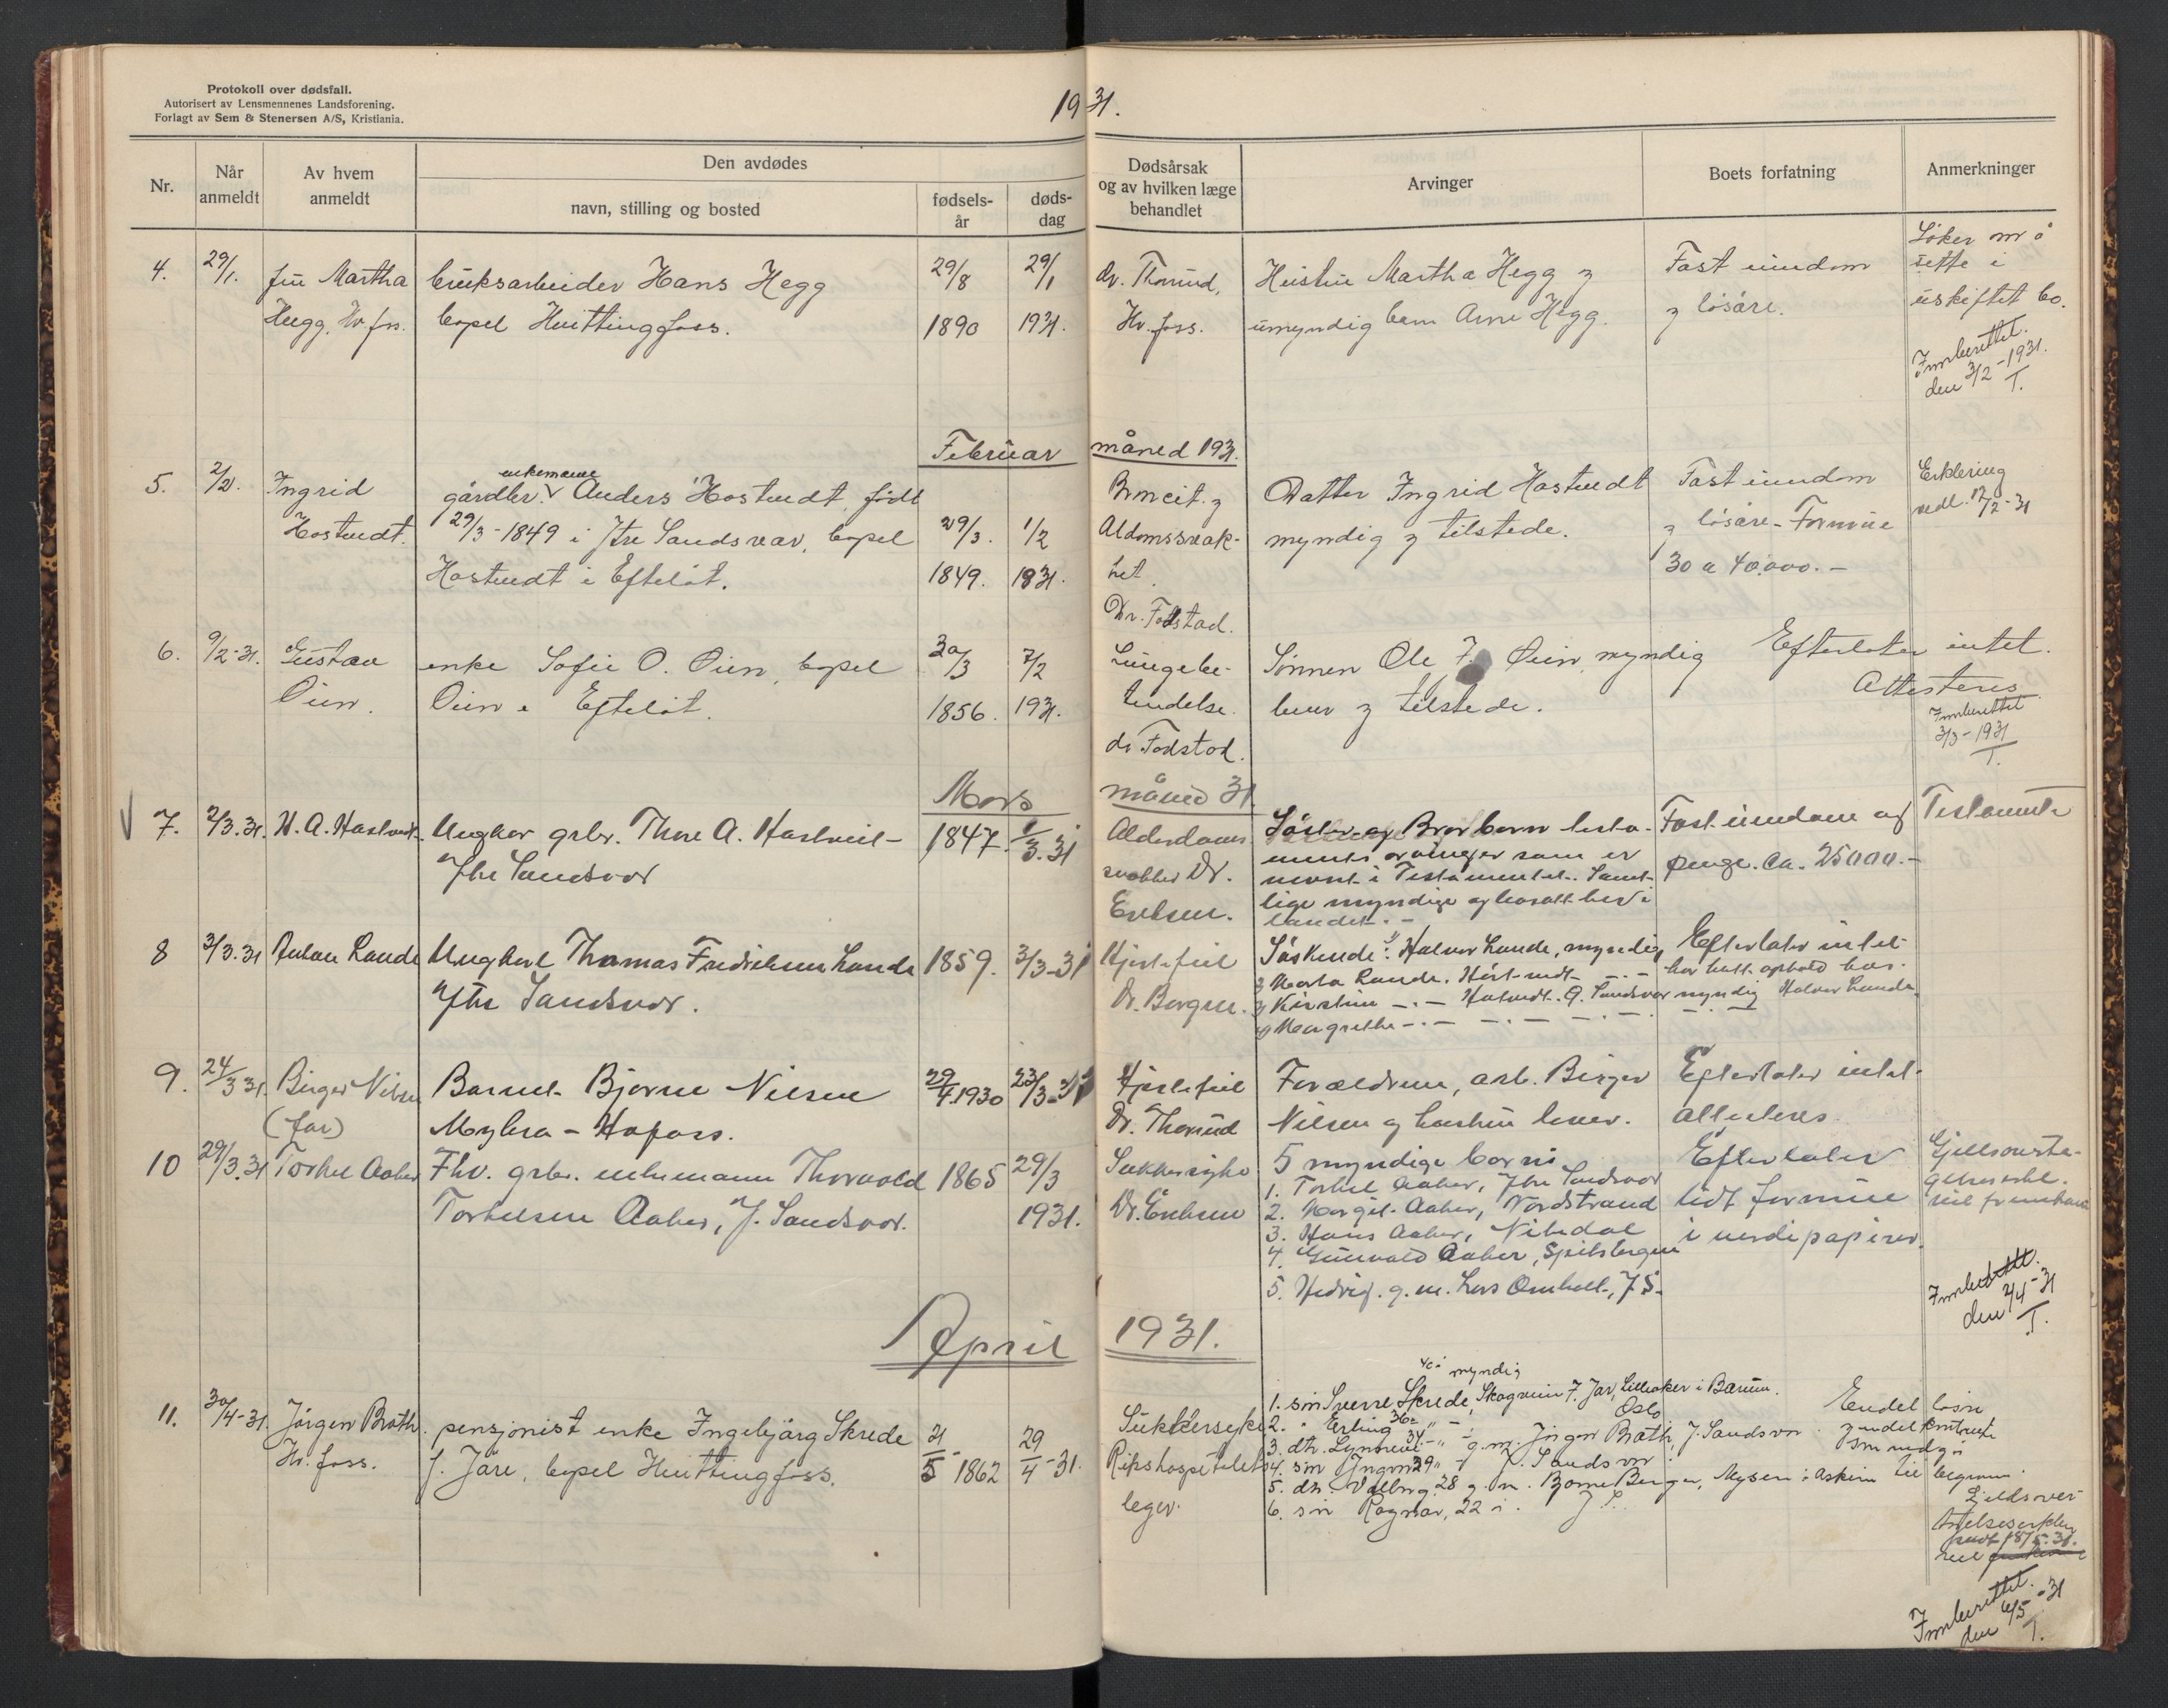 Protokoll over dødsfall.
Autorisert av Lensmennenes Landsforening.
Forlagt av Sem & Stenersen A/S, Kristiania.
1931.
Nr.
Når anmeldt
Av hvem anmeldt
Den avdødes
navn, stilling og bosted
fødsels-år
døds-dag
Dødsårsak og av hvilken læge behandlet
Arvinger
Boets forfatning
Anmerkninger
4. 29/1. fru Martha bruksarbeider Hans Hegg 29/8 29/1 dr. Thorud, Hustru Martha Hegg og Fast eiendom Söker om å
Hegg, Hv.foss. bopel Hvittingfoss. 1890 1931. Hv.foss. umyndig barn Arne Hegg. og lösöre. sitte i
uskiftet bo.
Innberettet.
den 3/2-1931.
T.
Februar måned 1931.
5. 2/2. Ingrid gårdbr. enkemann Anders Hostvedt, født Datter Ingrid Hostvedt Fast eiendom Erklering
Hostvedt. 29/3-1849 i Ytre Sandsvær, bopel 29/3. 1/2 Aldomssvak- myndig og tilstede. og lösöre - Formue vedl. 12/2-31
Hostvedt i Efteløt. 1849. 1931. het. 30 a 40.000.-
Dr. Fodstad.
6. 9/2-31. Gustav enke Sofie O. Öien, bopel 30/3 7/2 Lungebe- Sönnen Ole J. Öien, myndig Efterlater intet.
Öien. Öien i Efteløt. 1856. 1931. tendelse. og tilstede. Attesteres.
dr. Fodstad. Innberettet
3/3-1931
T.
Mars måned 31
7. 2/3.31. H.A. Hostvedt. Ungkar grbr. Thore A. Hostvedt - 1847. 1/3.31 Alderdoms Söster og Brorbarn testa- Fast eiendom og Testamente
Ytre Sandsvær svakhet Dr. ments arvinger som er penge. Ca. 25000.-
nevnt i Testamentet. Samt-
lige myndige og bosatt her i
landet. -
8 3/3.31 Lande Ungkarl Thomas Fredriksen Lande 1859. 3/3-31 Hjertefeil Söskende: Halvor Lande, myndig Efterlater intet
Ytre Sandsvær. Dr. Borgen. og Marta Lande, har hatt ophold hos
og Kirstine -.- Sandsvær myndig Halvor Lande.
og Margrethe -.- -.- -.-
9. 24/3 31. Birger Nilsen Barnet Bjarne Nilsen 29/4.1930 23/3-31 Hjertefeil Forældrene, arb. Birger Efterlater intet.
(far) Myhra - Hofoss. Dr. Thorud Nilsen og hustru lever. attesteres.
10 29/3.31 Torkel Aaber Fhv. grbr. enkemann Thorvald 1865 29/3 Sukkersyke 5 myndige barn: Efterlater Gjellsovertа-
Torkelsen Aaber, Y. Sandsvær. 1931. 1. Torkel Aaber, Ytre Sandsvær lidt formue gelseserkl.
2. Aaber, Nordstrand i verdipapirer.
3. Hans Aaber, Nittedal
4. Gunvald Aaber, Spitsbergen
5. Hedvig. g.m. Lars Omholt, Y S. Innberettet.
den 2/4-31
T.
April 1931.
11. 30/4-31. Jörgen Bråth. pensjonist enke Ingebjörg Skrede 21/5-1862 29/4-31. Sukkersyke 1. sön Sverre Skrede, 40 år myndig, Jar, Lilleaker i Bærum. Endel lösöre
Hv.foss. f. Jare, bopel Hvittingfoss. Rikshospitalets 2. " Erling 36 " - " Oslo
leger. 3. dtr. 34 - " - g.m. Jörgen Bråth, Y. Sandsvær
4. sön Ingvar 29 " - " Y. Sandsvær
5. dtr. Valborg 28 g.m. Bjarne Berger, Mysen i Askim til begrav.
6. sön Ragnar, 22 år. Y S. Gjeldsover-
tagelseserklær.
18/5-31.
Innberettet.
den 6/5-31
T.